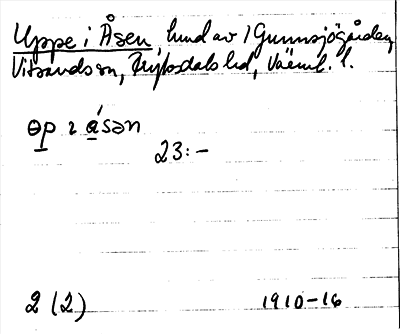 Uppe i Åsen, hund av /Gunnsjögården
Vitsands sn, Fryksdals hd, Värml. l.
ɵp ɪ a´sən
23:-
2 (2) 1910-16